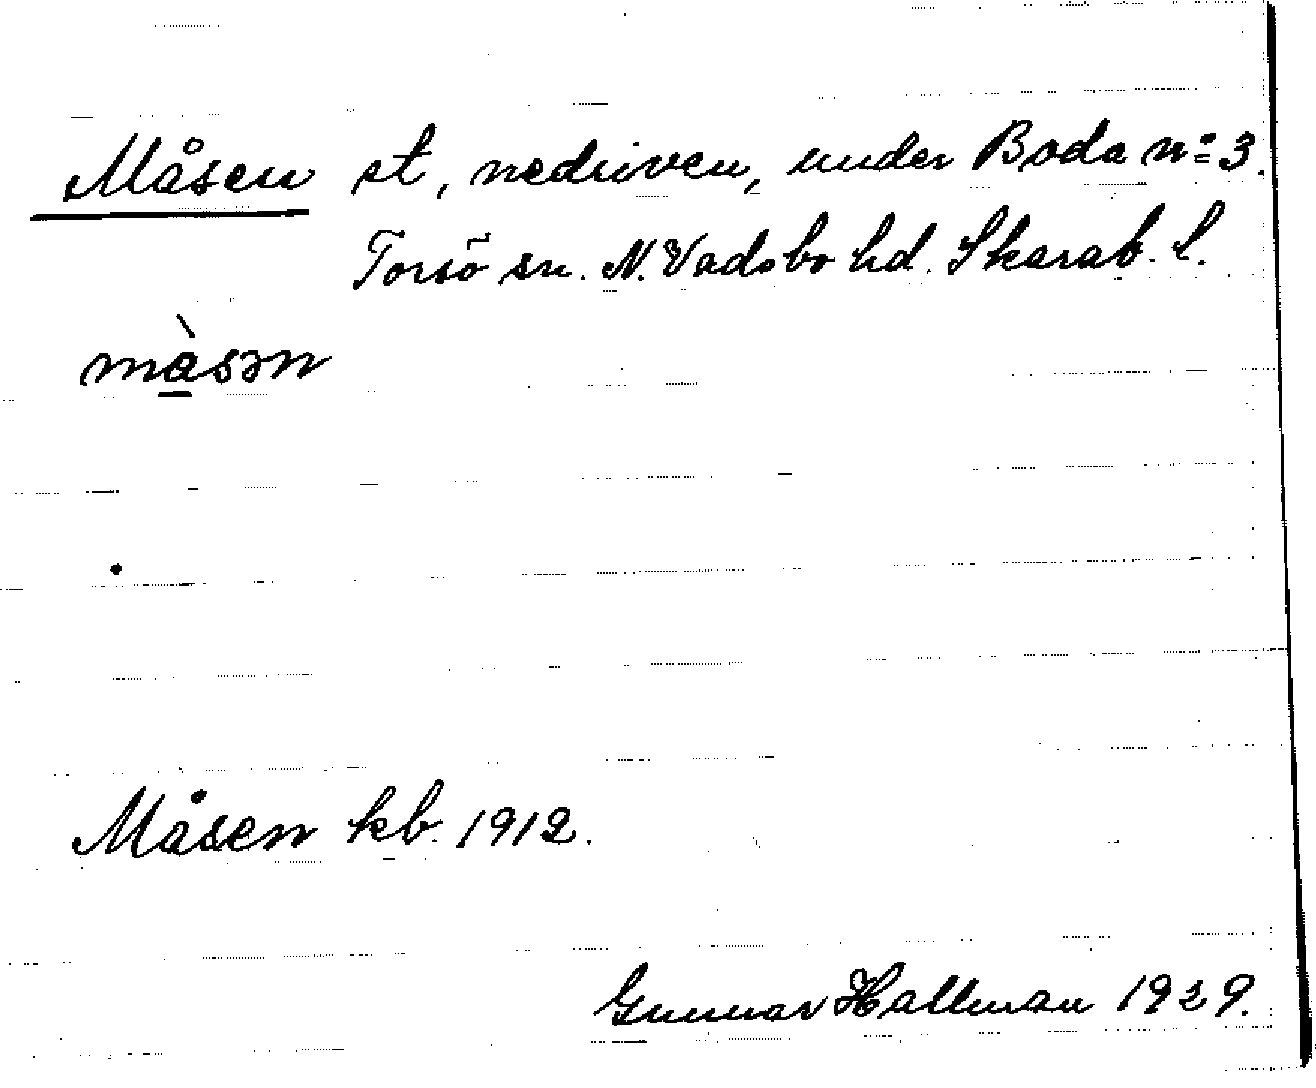 Måsen st, nedriven, under Boda nº 3.
Torsö sn. N. Vadsbo hd. Skarab. l.
màsən
Måsen kb. 1912.
Gunnar Hallman 1929.